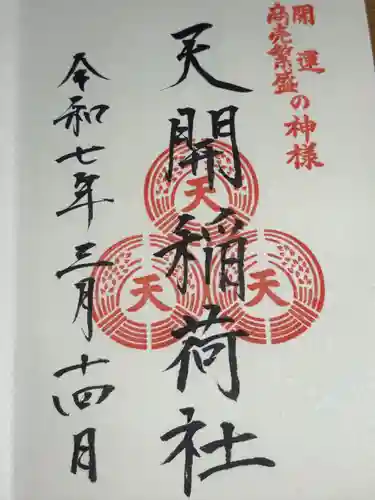 開運
商売繁盛の神様
天開稲荷社
天
天
天
令和七年三月十四月